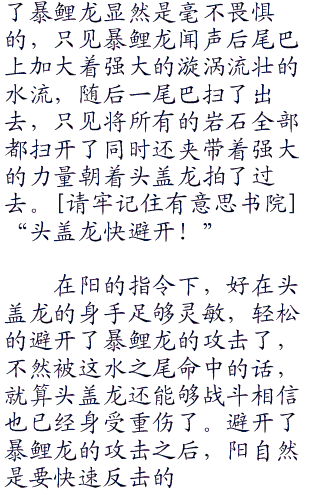 了暴鲤龙显然是毫不畏惧
的，只见暴鲤龙闻声后尾巴
上加大着强大的漩涡流壮的
水流，随后一尾巴扫了出
去，只见将所有的岩石全部
都扫开了同时还夹带着强大
的力量朝着头盖龙拍了过
去。[请牢记住有意思书院]
“头盖龙快避开！”
在阳的指令下，好在头
盖龙的身手足够灵敏，轻松
的避开了暴鲤龙的攻击了，
不然被这水之尾命中的话，
就算头盖龙还能够战斗相信
也已经身受重伤了。避开了
暴鲤龙的攻击之后，阳自然
是要快速反击的